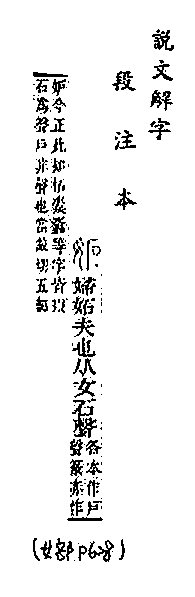 說文解字
段注本
妒婦妒夫也从女石聲各本作戶
聲篆亦作
妒今正此如柘橐蠹等字皆以
石爲聲戶非聲也當故切五部
(女部 P628)